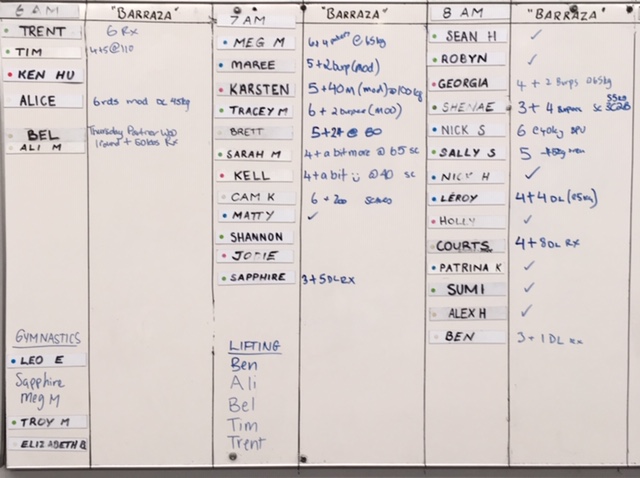 6 AM "BARRAZA"
TRENT 6 Rx
TIM 4+5@110
KEN HU
ALICE 6rds mod DL 45kg
BEL Thursday Partner WOD
ALI M 1 round + 50 Rx
GYMNASTICS
LEO E
Sapphire
Meg M
TROY M
ELIZABETH B
7 AM "BARRAZA"
MEG M 6+4 @ 65kg
MAREE 5+2burp(mod)
KARSTEN 5+40m(mod)@100kg
TRACEY M 6+2 burpee (MOD)
BRETT 5+27 @ 80
SARAH M 4+a bit more @ 65 sc
KELL 4+a bit @40 sc
CAM K 6 + 200 SCALED
MATTY ✓
SHANNON
JODIE
SAPPHIRE 3+5DL RX
LIFTING
Ben
Ali
Bel
Tim
Trent
8 AM "BARRAZA"
SEAN H ✓
ROBYN ✓
GEORGIA 4 + 2 Burps @65kg
SHENAE 3+4 Burpees SC
NICK S 6 @40kg
SALLY S 5
NICK H ✓
LÉROY 4+4DL (85kg)
HOLLY ✓
COURTS 4+8DL RX
PATRINA K ✓
SUMI ✓
ALEX H ✓
BEN 3+1DL